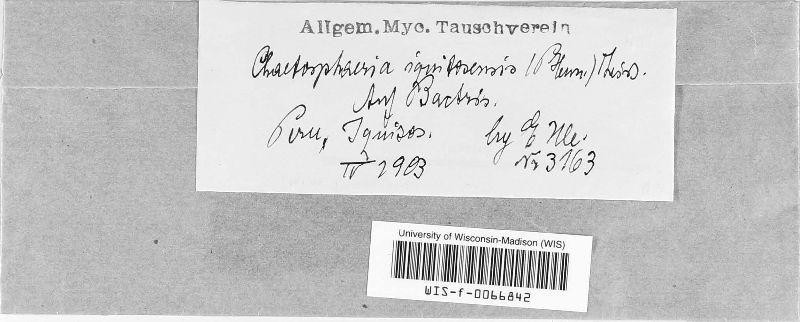 Allgem. Myc. Tauschverein
Chaetosphaeria iquitosensis (P. Henn.) Theiss.
Auf Bactris.
Peru, Iquisos. leg E Ule.
IV 1903 Nr 3163
University of Wisconsin-Madison (WIS)
WIS-f-0066842